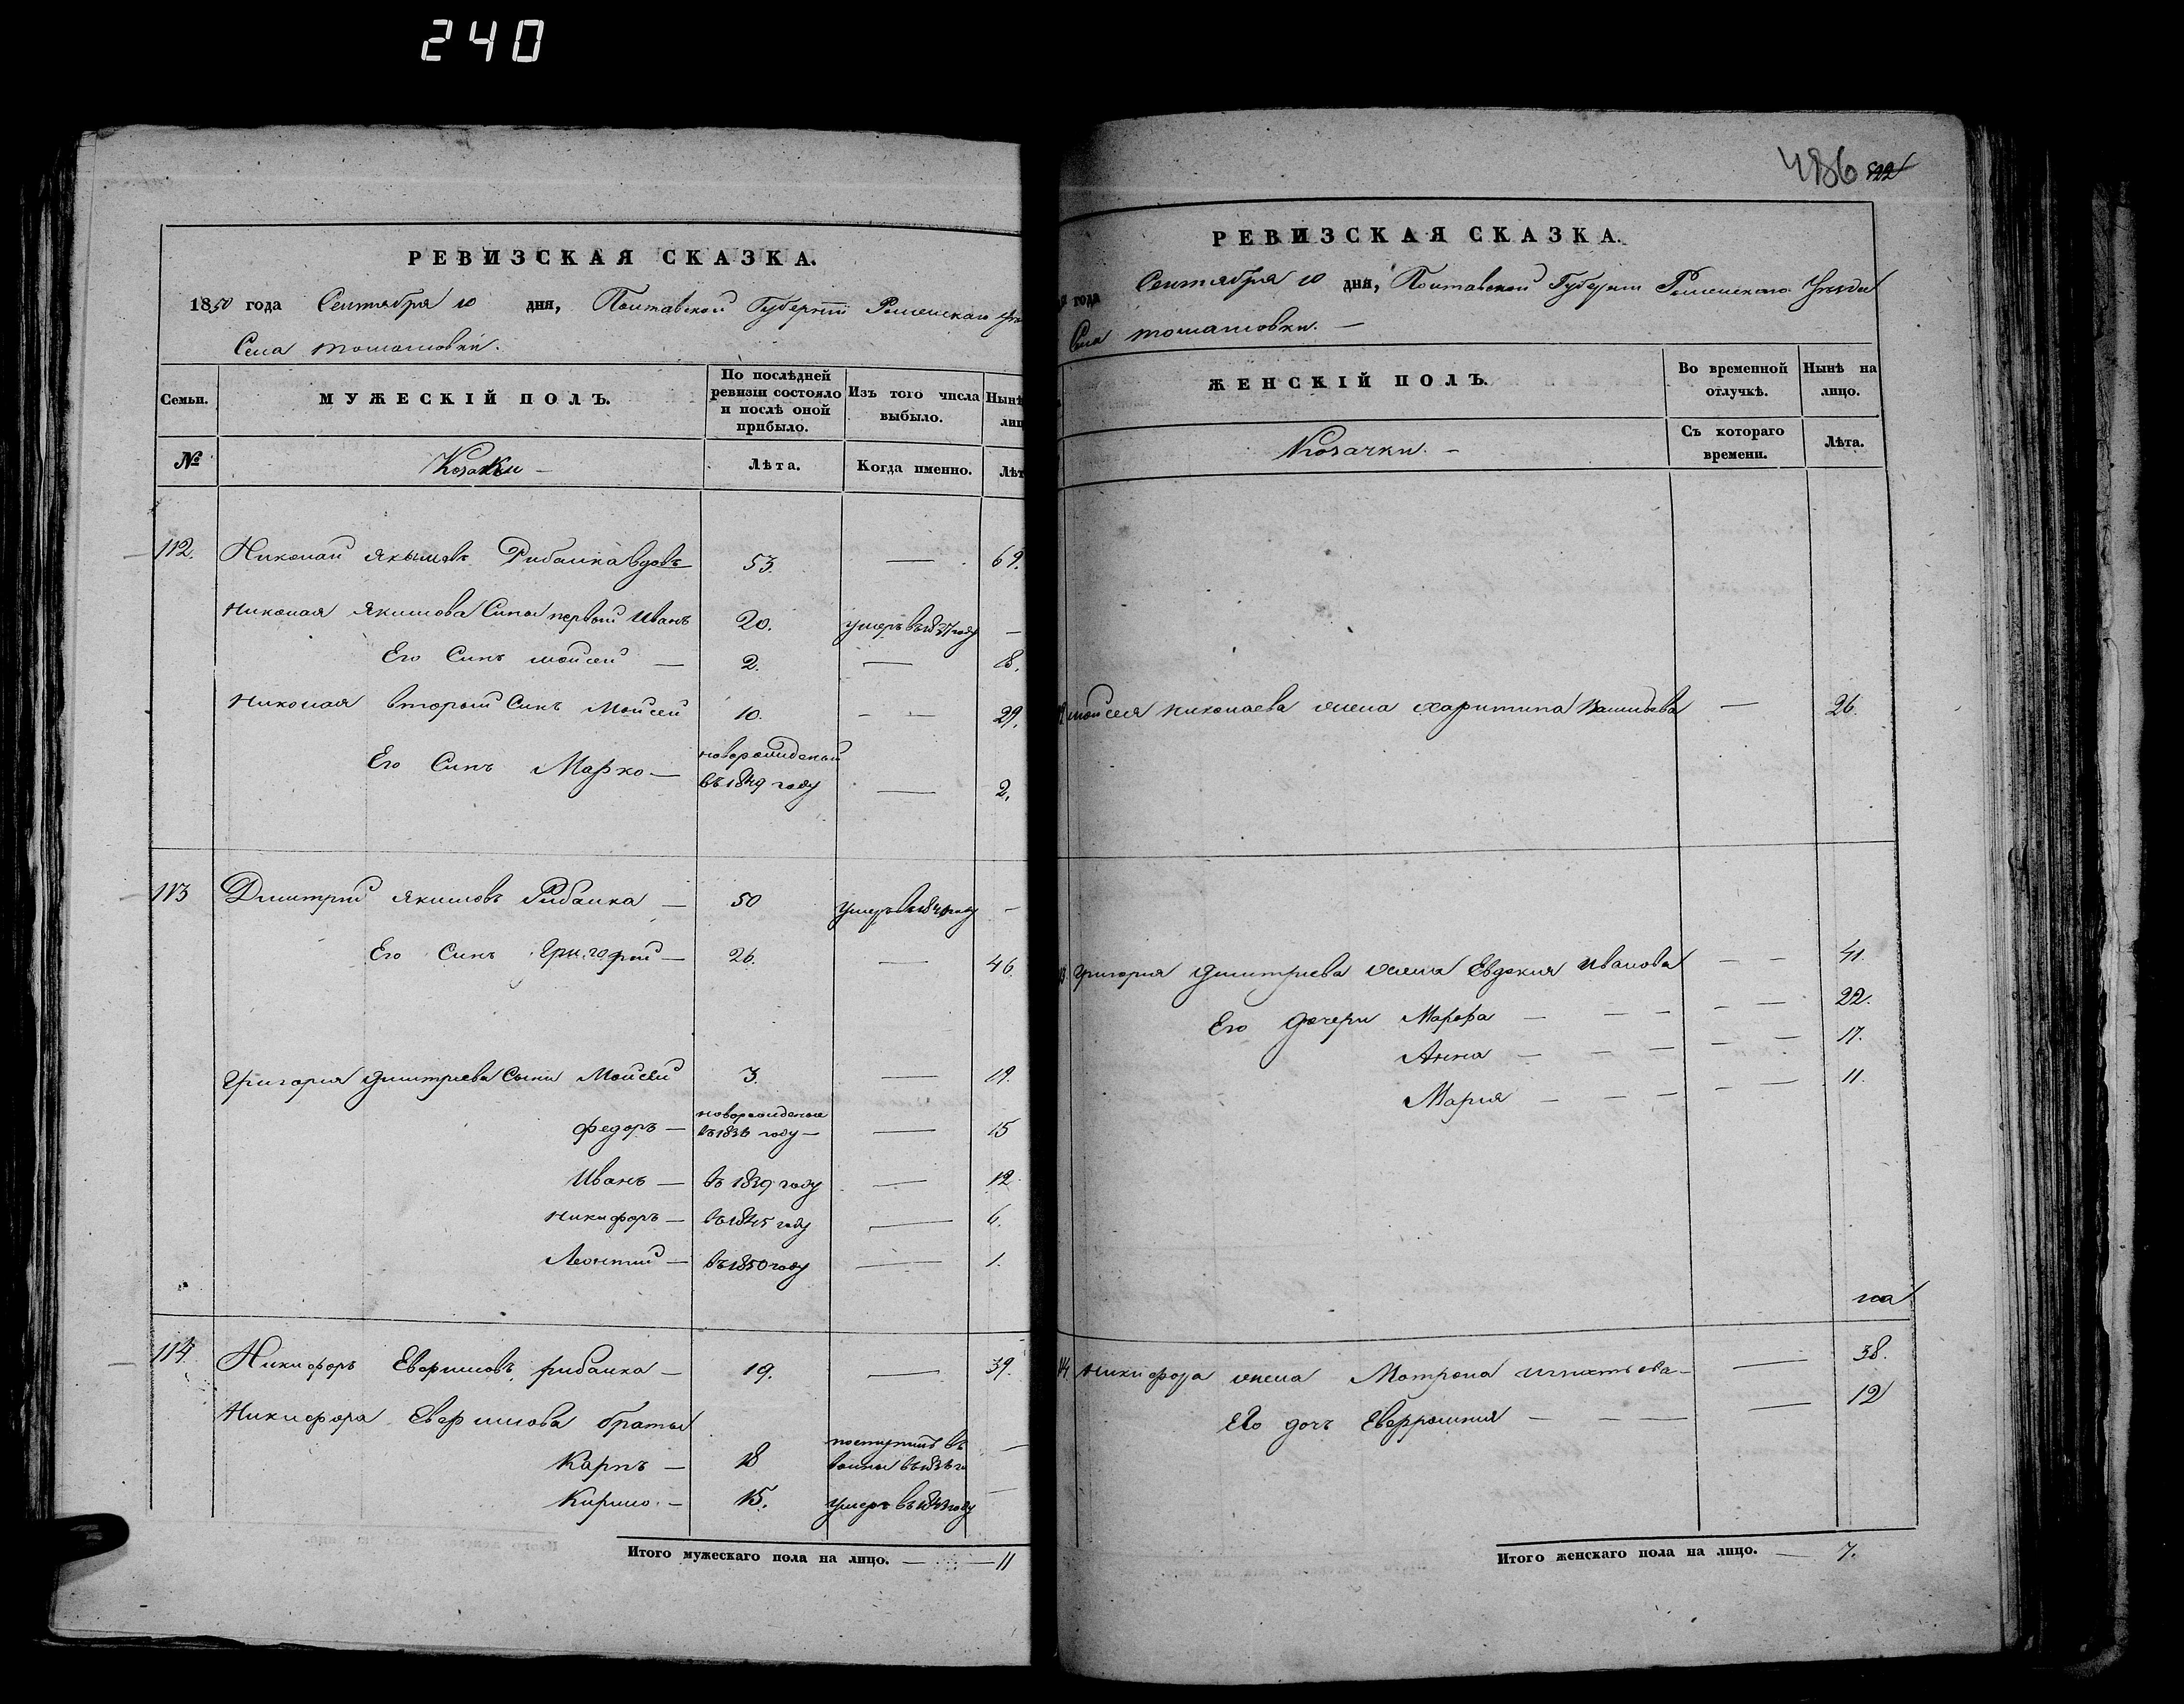 240
РЕВИЗСКАЯ СКАЗКА.
1850 года Сентября 10 дня, Полтавской Губерніи Роменскаго
Села томашовки.
Семьи.
МУЖЕСКІЙ ПОЛЪ.
По послѣдней
ревизіи состояло
и послѣ оной
прибыло.
Изъ того числа
выбыло.
Нынѣ
лиц
№
Козаки
Лѣта.
Когда именно.
Лѣт
112. Николай Якимовъ Рибалка вдовъ 53. — 69.
Николая Якимова Сины первый Иванъ 20. умеръ въ 1837 году —
Его Синъ мойсей — 2. — 18.
Николая второй Синъ Мойсей 10. — — 29.
Его Синъ Марко —
новорожденый
въ 1849 году — 2.
113 Димитрий Якимовъ Рибалка — 50 умеръ в 1840 году —
Его Синъ Григорий — 26. — 46.
Григория Димитриева Сыны Мойсей 3. — 19.
Федоръ —
новорожденые
въ 1836 году — — 15
Иванъ — въ 1839 году — 12
Никифоръ — въ 1845 году — 6.
Леонтий — въ 1850 году — 1.
114. Никифоръ Евфимовъ рибалка — 19. — 39.
Никифора Евфимова браты
Карпъ — 18
поступилъ въ
—
Кирило. — 15. умеръ въ 1843 году —
Итого мужескаго пола на лицо. — 11
486 522
РЕВИЗСКАЯ СКАЗКА.
года Сентября 10 дня, Полтавской Губерніи Роменскаго Уезда
Села томашовки. —
ЖЕНСКІЙ ПОЛЪ.
Во временной
отлучкѣ.
Нынѣ на
лицо.
Козачки. —
Съ котораго
времени.
Лѣта.
мойсея николаева жена харитина — 26.
Григория Димитриева жена Евдокия Иванова — — 41.
Его дочери Марфа — — — — — 22.
Анна — — — — — 17.
Мария — — — — — 11.
Никифора жена Матрона игнатьева — — 38.
Его дочь Евфросиния — — — — 12
Итого женскаго пола на лицо. — 7.